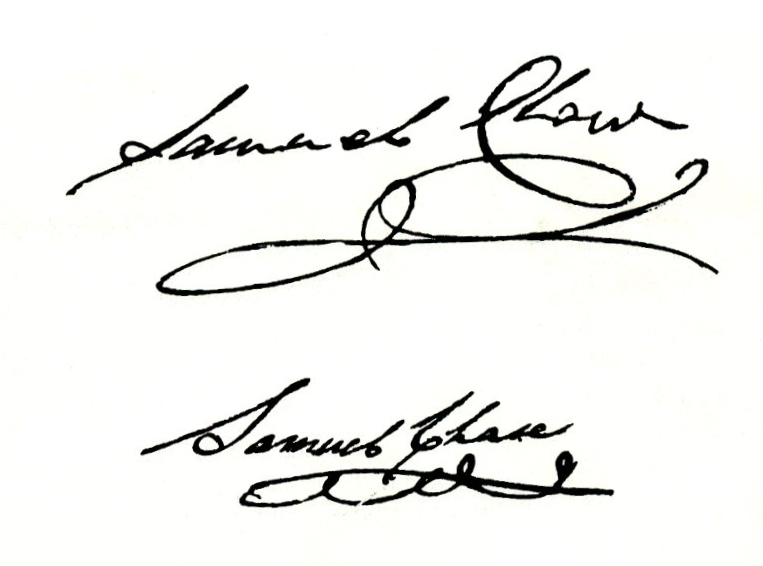 Samuel Chase
Samuel Chase